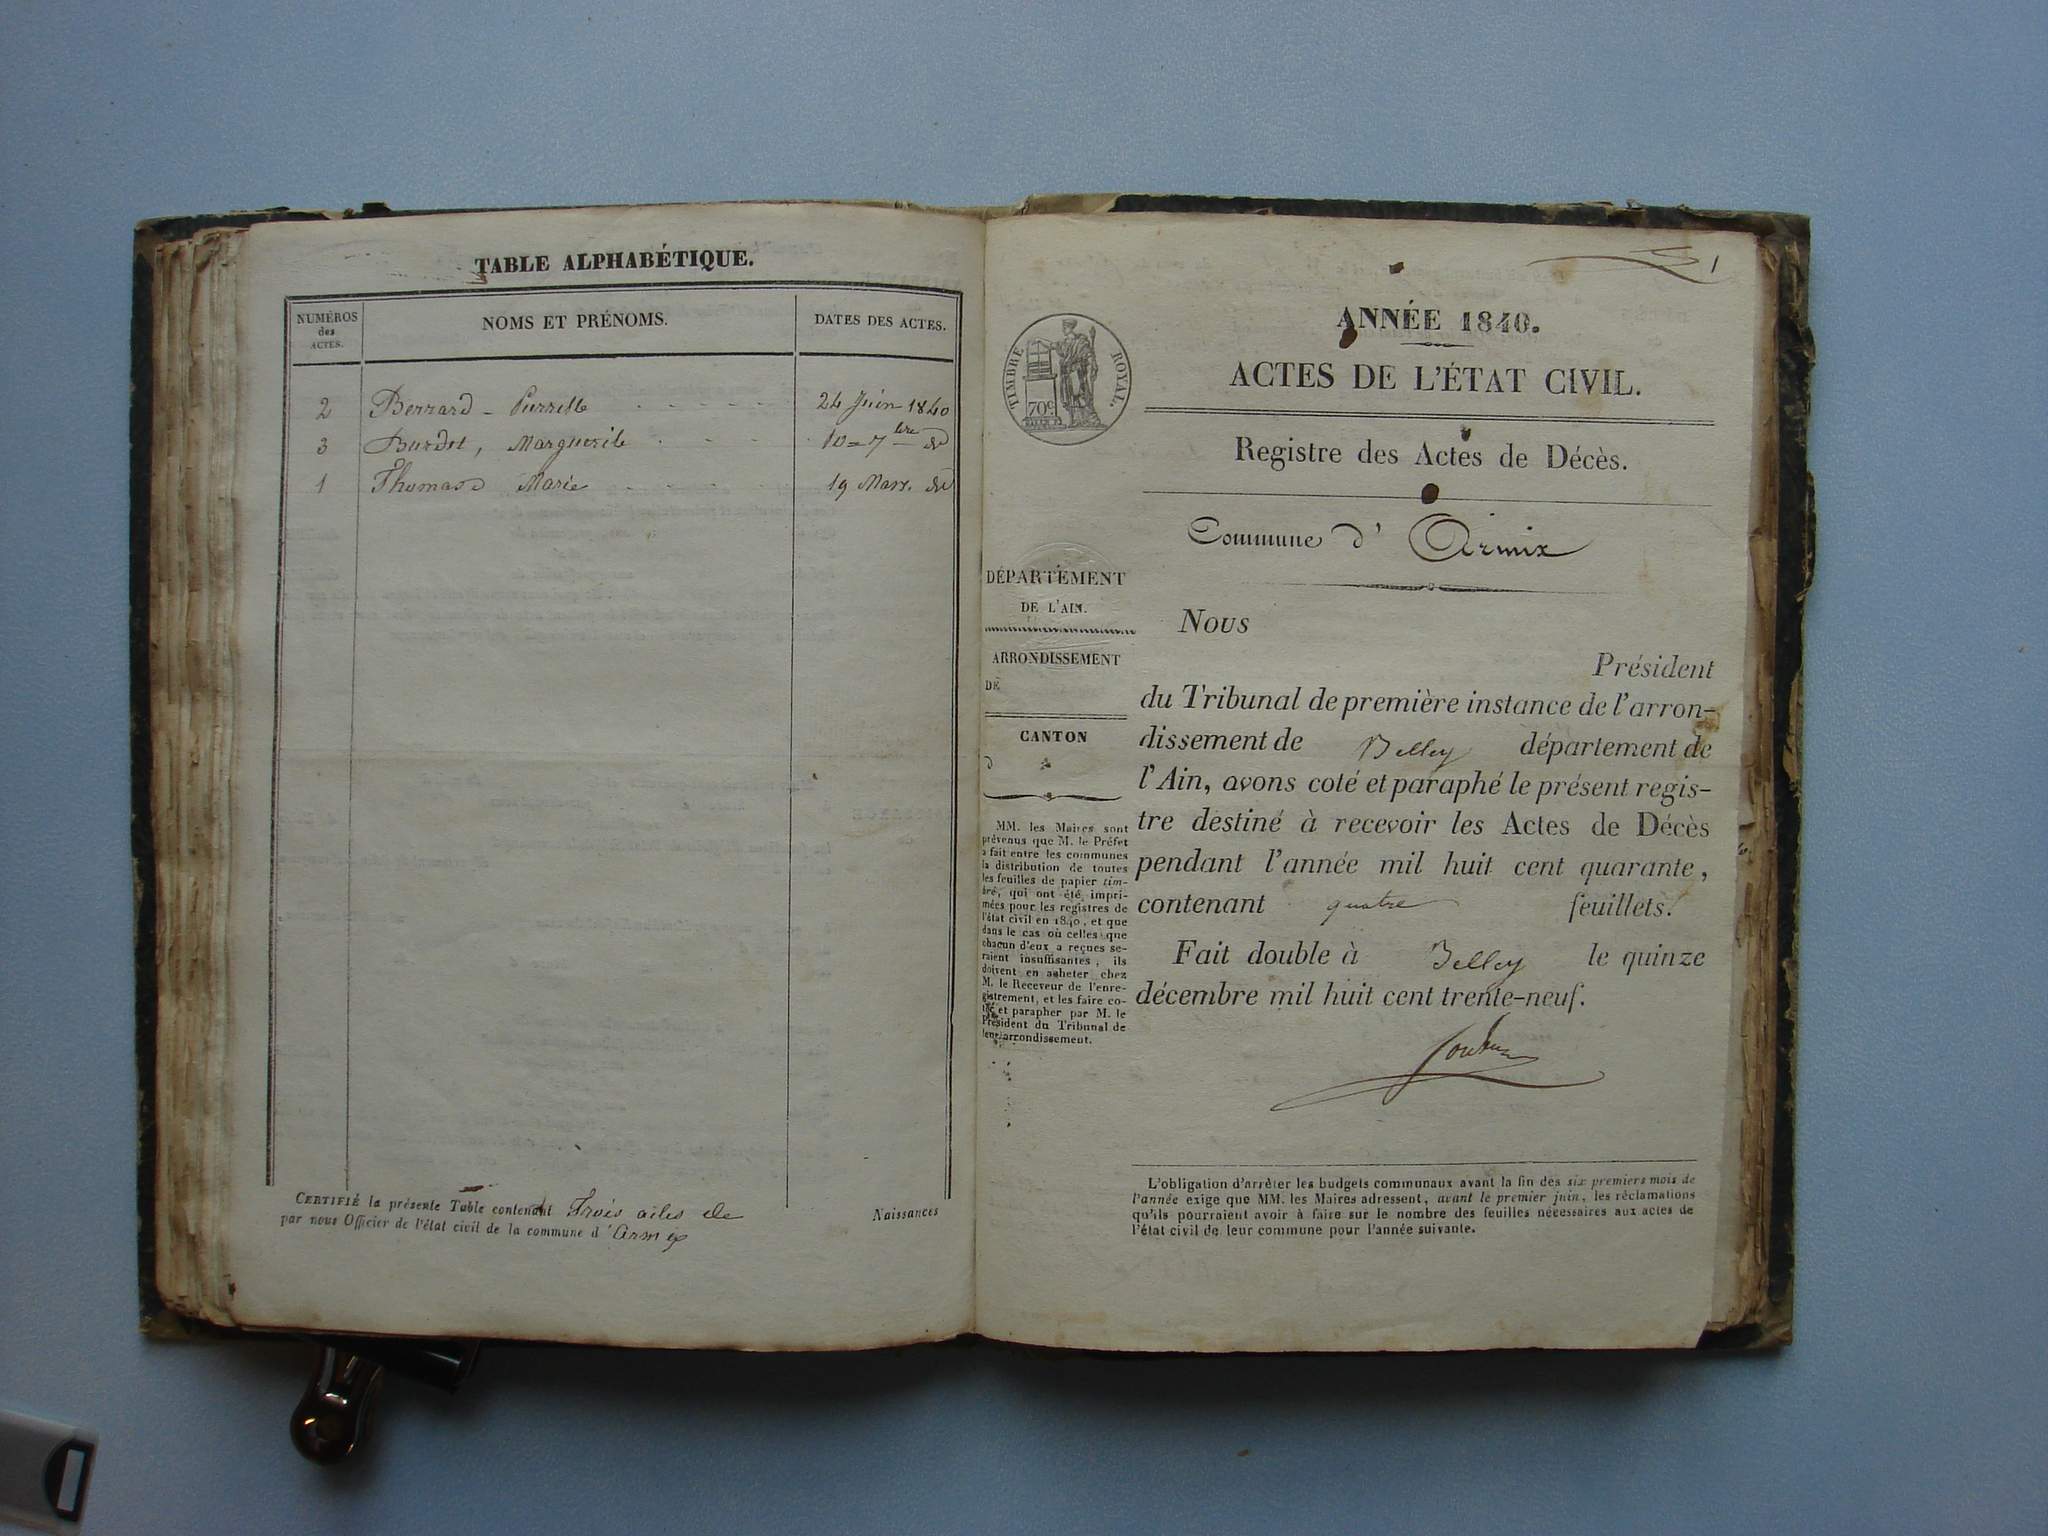 TABLE ALPHABÉTIQUE.
NUMÉROS
des
ACTES.
NOMS ET PRÉNOMS.
DATES DES ACTES.
2 Berrard - 24 Juin 1840
3 Burdet, Marguerite 10 = 7bre
1 Thomas Marie 19 Mars.
CERTIFIÉ la présente Table contenant Trois actes de Naissances
par nous Officier de l'état civil de la commune d'Armix
1
ANNÉE 1840.
TIMBRE ROYAL.
70c
ACTES DE L'ÉTAT CIVIL.
Registre des Actes de Décès.
Commune d' Armix
DÉPARTEMENT
DE L'AIN.
ARRONDISSEMENT
DE
CANTON
d
MM. les Maires sont
prévenus que M. le Préfet
a fait entre les communes
la distribution de toutes
les feuilles de papier tim-
bré, qui ont été impri-
mées pour les registres de
l'état civil en 1840, et que
dans le cas où celles que
chacun d'eux a reçues se-
raient insuffisantes, ils
doivent en acheter chez
M. le Receveur de l'enre-
gistrement, et les faire co-
ter et parapher par M. le
Président du Tribunal de
leur arrondissement.
Nous
Président
du Tribunal de première instance de l'arron-
dissement de Belley département de
l'Ain, avons coté et paraphé le présent regis-
tre destiné à recevoir les Actes de Décès
pendant l'année mil huit cent quarante,
contenant quatre feuillets.
Fait double à Belley le quinze
décembre mil huit cent trente-neuf.
L'obligation d'arrêter les budgets communaux avant la fin des six premiers mois de
l'année exige que MM. les Maires adressent, avant le premier juin, les réclamations
qu'ils pourraient avoir à faire sur le nombre des feuilles nécessaires aux actes de
l'état civil de leur commune pour l'année suivante.